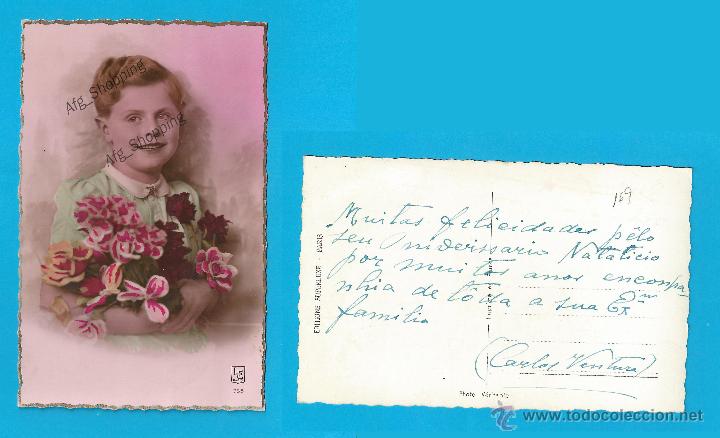 Afg_Shopping
Afg_Shopping
758
169
Muitas felicidades pêlo
seu niverssario Natalicio
por muitos anos encompa
nhia de tôda a sua Exmª
familia
(Carlos Ventura)
PARIS
Photo Véritable
todocoleccion
www.todocoleccion.net